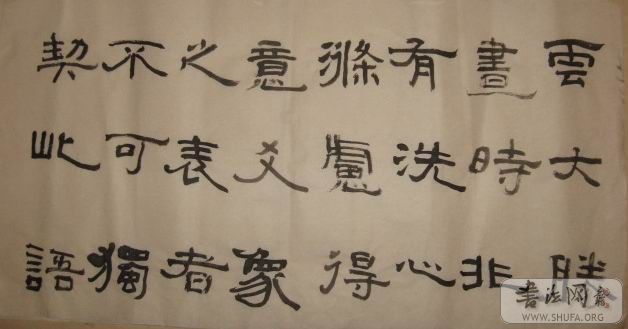 雲大勝
晝時非
有洗心
滌慮得
意爻象
之表者
不可獨
契此語
书法网
WWW.SHUFA.ORG